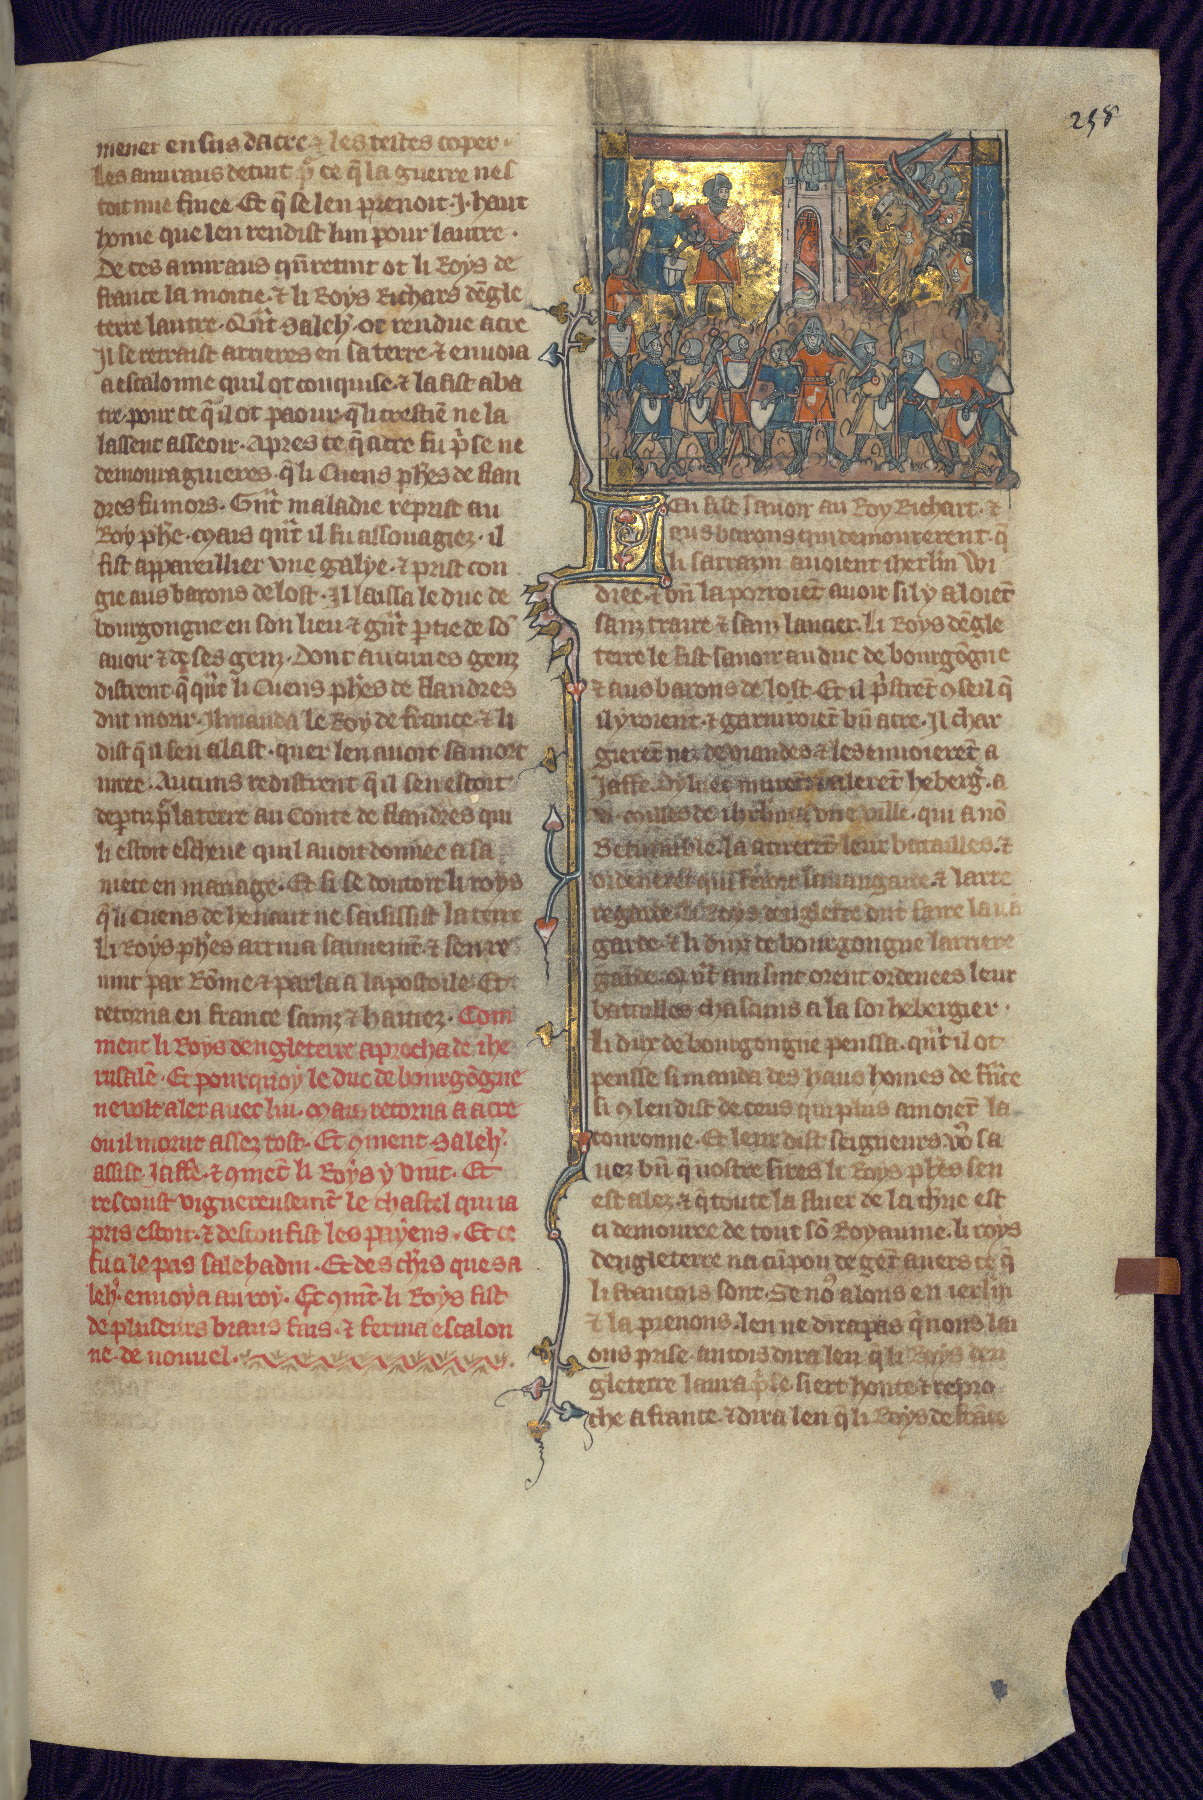 258
mener en sus dacre ⁊ les testes coper ·
Les amiraus detint p̃ ce q̃ la guerre nes
toit mie finee · Et q̃ se len prenoit · J · haut
home que len rendist lun pour lautre ·
De ces amiraus qũ retint ot li Roys de
france la moitie · ⁊ li Roys Richars dẽgle
terre lautre · Qñt Saleh̃ · ot rendue acre
Jl se retraist arrieres en sa terre · ⁊ enuoia
a escalonne quil ot conquise · ⁊ la fist aba
tre · pour ce q̃ il ot paour · q̃ li crestiẽ ne la
lassent asseoir · Apres ce q̃ acre fu p̃se ne
demoura guieres · q̃ li Cuens ph̃es de flan
dres fu mors · Gñt maladie reprist au
Roy ph̃e · Mais qñt il fu assouagiez · il
fist appareillier vne galye · ⁊ prist con
gie aus barons de lost · Jl laissa le duc de
bourgongne en son lieu ⁊ gñt ꝑtie de sõ
auoir · ⁊ de ses genz · Dont aucunes genz
distrent · q̃ qñt li Cuens ph̃es de flandres
dut morir · Jl manda le Roy de france · ⁊ li
dist q̃ il sen alast · quer len auoit sa mort
iuree · Aucuns redistrent q̃ il sen estoit
deꝑtiz p̃ la terre au Conte de flandres qui
li estoit escheue quil auoit donnee a sa
niece en mariage · Et si se doutoit li roys
q̃ li Cuens de henaut ne saisissist la terre
Li Roys ph̃es arriua sauuemt̃ · ⁊ sen re
uint par Rõme · ⁊ parla a lapostoile · Et
retorna en france sainz ⁊ haitiez · Com
ment li Roys dengleterre aprocha de ihe
rusalẽ · Et pourquoy le duc de bourgõgne
ne volt aler auec lui · Mais retorna a acre
ou il morut assez tost · Et ꝯment Saleh̃ ·
assist Jaffe · ⁊ ꝯmẽt li Roys y vint · Et
rescoust viguereusemt̃ le chastel qui ia
pris estoit · ⁊ desconfist les payens · Et ce
fu a le pas salehadin · Et des ch̃rs que sa
leh̃ · enuoya au roy · Et ꝯmẽt li Roys fist
de pluseurs biaus fais · ⁊ ferma escalon
ne de nouuel ·
Len fist sauoir au Roy Richart · ⁊
aus barons qui demourerent · q̃
li sarrazin auoient iherlm̃ wi
diee · ⁊ bñ la porroiẽt auoir sil y aloiẽt
sanz traire ⁊ sanz lancier · li Roys dẽgle
terre le fist sauoir au duc de bourgõgne
⁊ aus barons de lost · Et il p̃strẽt ꝯseil q̃
il yroient · ⁊ garniroiẽt bñ acre · Jl char
gierẽt nez de viandes ⁊ les enuoierẽt a
Jaffe · Dyluec murẽt ⁊ alerẽt heberg̃ · a
vi · milles de ih̃rlm̃ a vne ville · qui a nõ
Betenuble · la atirerẽt leur batailles · ⁊
ordenerẽt qui feroit lauangarde · ⁊ larre
regarde · li Roys dengletre dut faire laua
garde · ⁊ li dux de bourgongne larriere
garde · Qñt ainsinc orent ordenees leur
batailles chascuns ala soi hebergier ·
Li dux de bourgongne penssa · qñt il ot
pensse si manda des haus homes de frãce
si ꝯ len dist de ceus qui plus amoiẽt la
couronne · Et leur dist seigneurs vo9 sa
uez bñ q̃ nostre sires li Roys ph̃es sen
est alez · ⁊ q̃ toute la fluer de la ch̃rie est
ci demouree de tout sõ Royaume · li roys
dengleterre na cũ pou de gẽt auers ce q̃
li francois sont · Se no9 alons en ierlm̃
⁊ la prenons · len ne dira pas q̃ nous lai
ons prise · aincois dira len q̃ li Roys den
gleterre laura p̃se · si ert honte ⁊ repro
che a france · ⁊ dira len q̃ li Roys de frãce